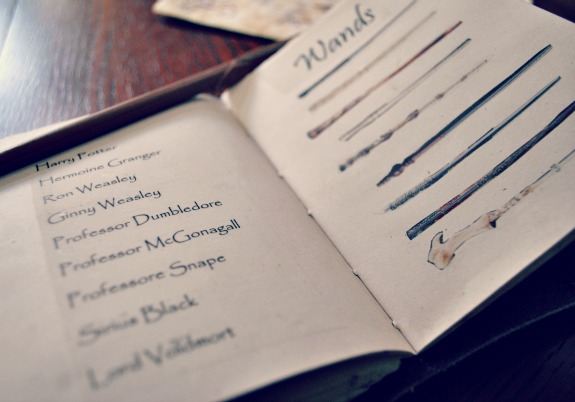 Harry Potter
Hermoine Granger
Ron Weasley
Ginny Weasley
Professor Dumbledore
Professor McGonagall
Professore Snape
Sirius Black
Lord Voldmort
Wands